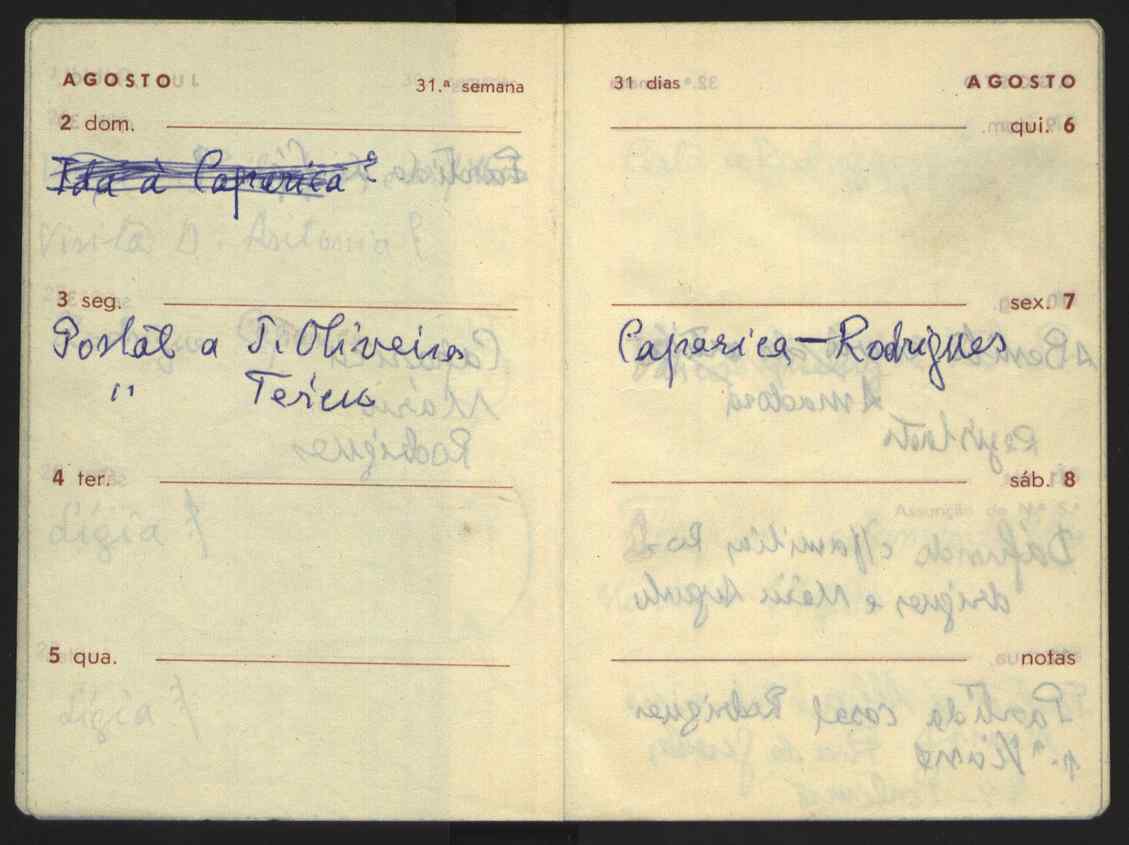 AGOSTO 31.ª semana
2 dom.
Ida à Caparica?
Visita D. António ?
3 seg.
Postal a T. Oliveira
" 
4 ter.
Lígia ?
5 qua.
Lígia ?
31 dias AGOSTO
qui. 6
sex. 7
Caparica - Rodrigues
sáb. 8
notas